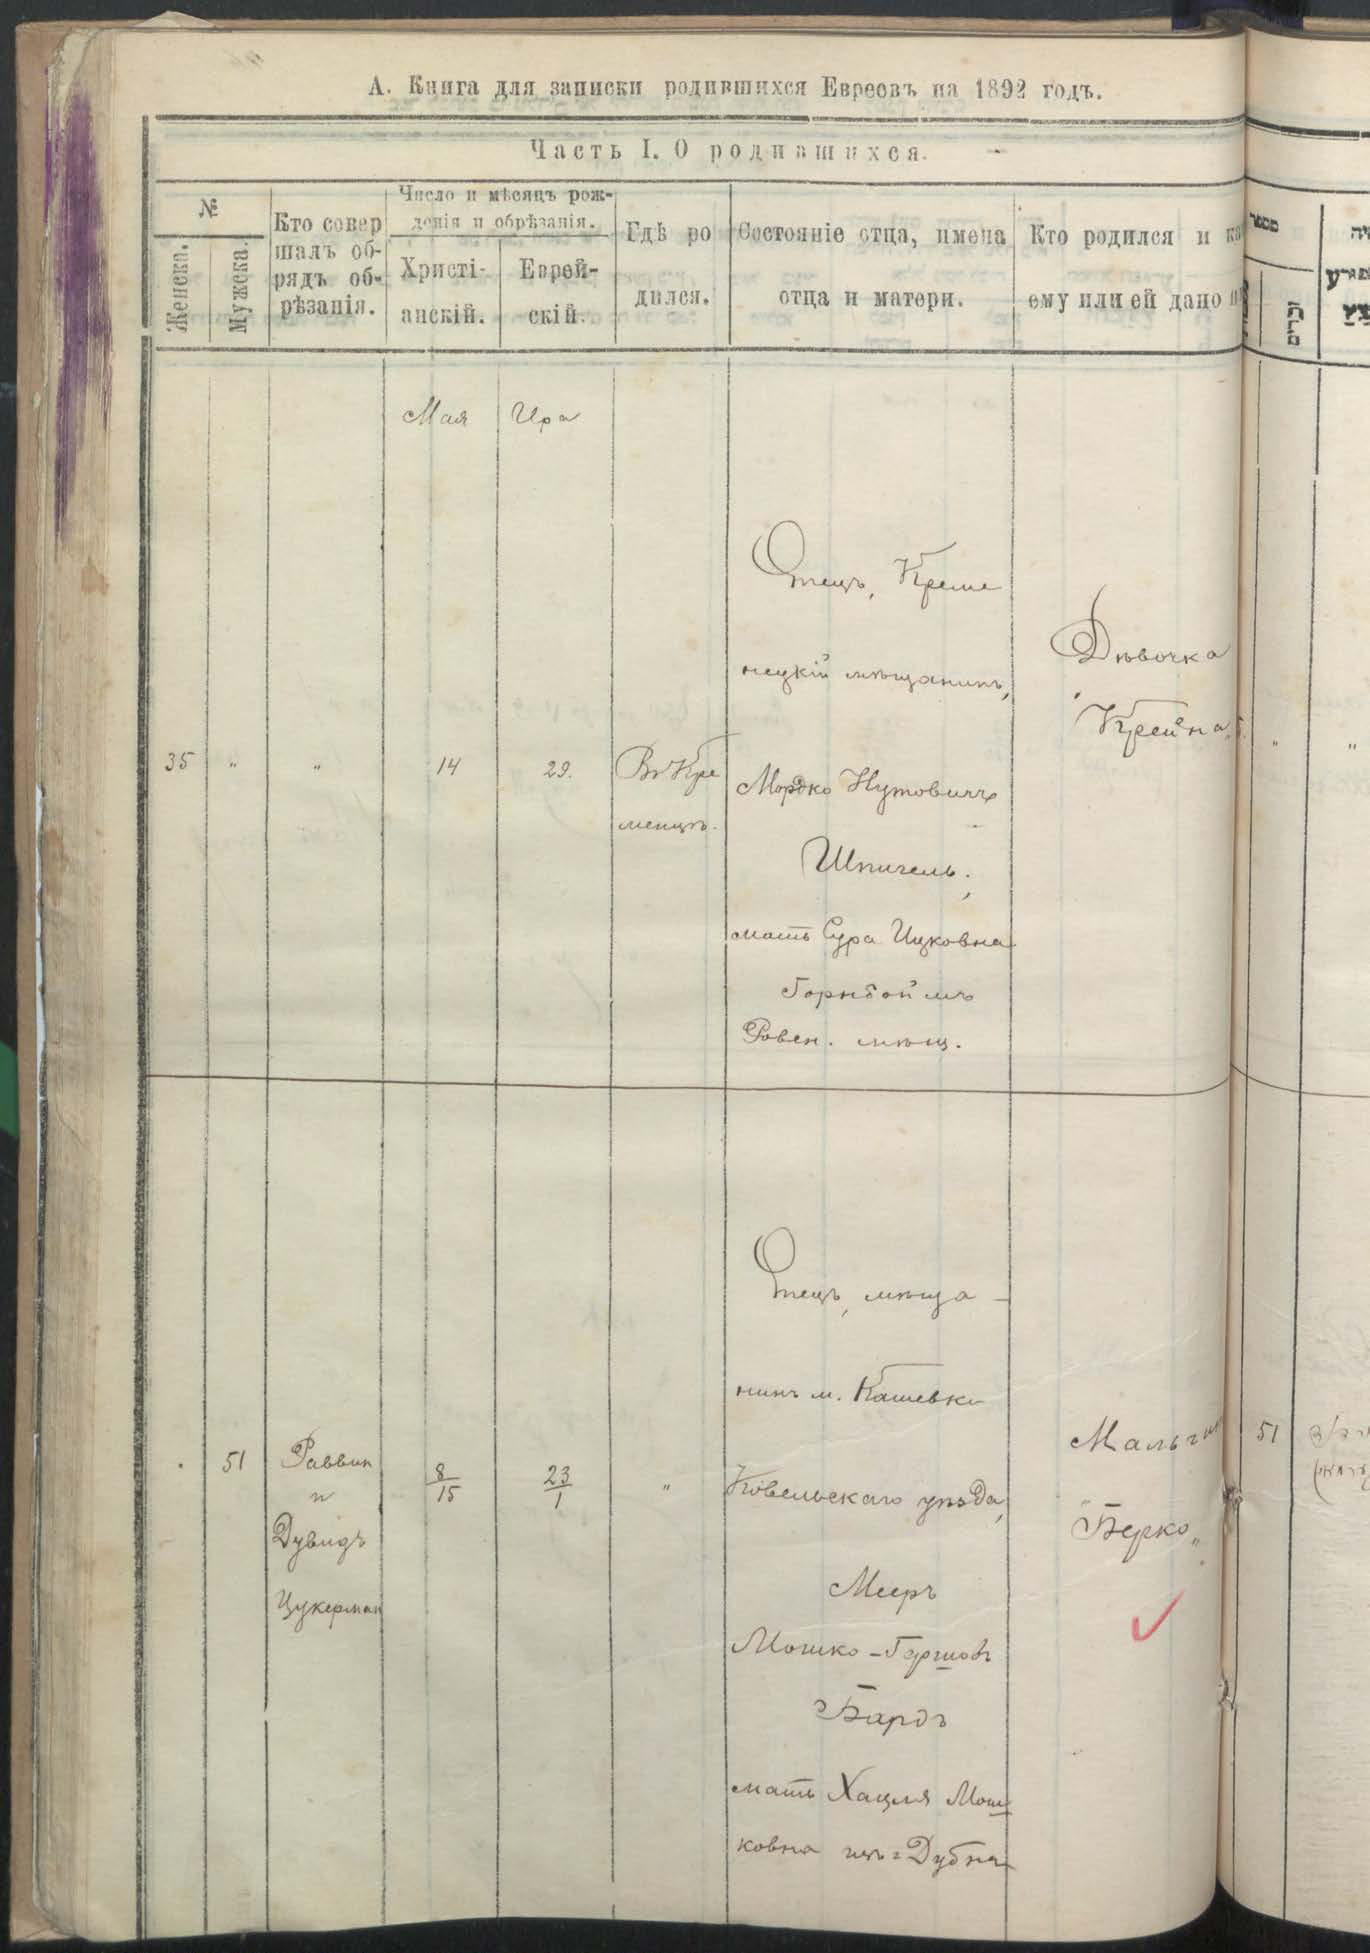 А. Книга для записки родившихся Евреевъ на 1892 годъ.
Часть I. О родившихся.
№
Женска.
Мужеска.
Кто совер
шалъ об-
рядъ об-
рѣзанія.
Число и мѣсяцъ рож-
денія и обрѣзанія.
Христі-
анскій.
Еврей-
скій.
Гдѣ ро
дился.
Состояніе отца, имена
отца и матери.
Кто родился и ка
ему или ей дано и
מספר
זכרים
Мая
Ира
35
"
"
14
29.
Въ Кре
менцѣ.
Отецъ, Креме
нецкій мѣщанинъ,
Мордко Нутовичъ
Шпигель;
мать Сура Ицковна
Ровен. мѣщ.
Дѣвочка
"Крейна"
"
"
51
Раввин
и
Дувидъ
Цукерман
8/15
23/1
"
Отецъ, мѣща-
нинъ м. Кашевки
Ковельскаго уѣзда,
Мееръ
Мошко-Гершов
Бардъ
мать Хацля Мош
ковна изъ Дубна
Мальчик
"Берко"
51